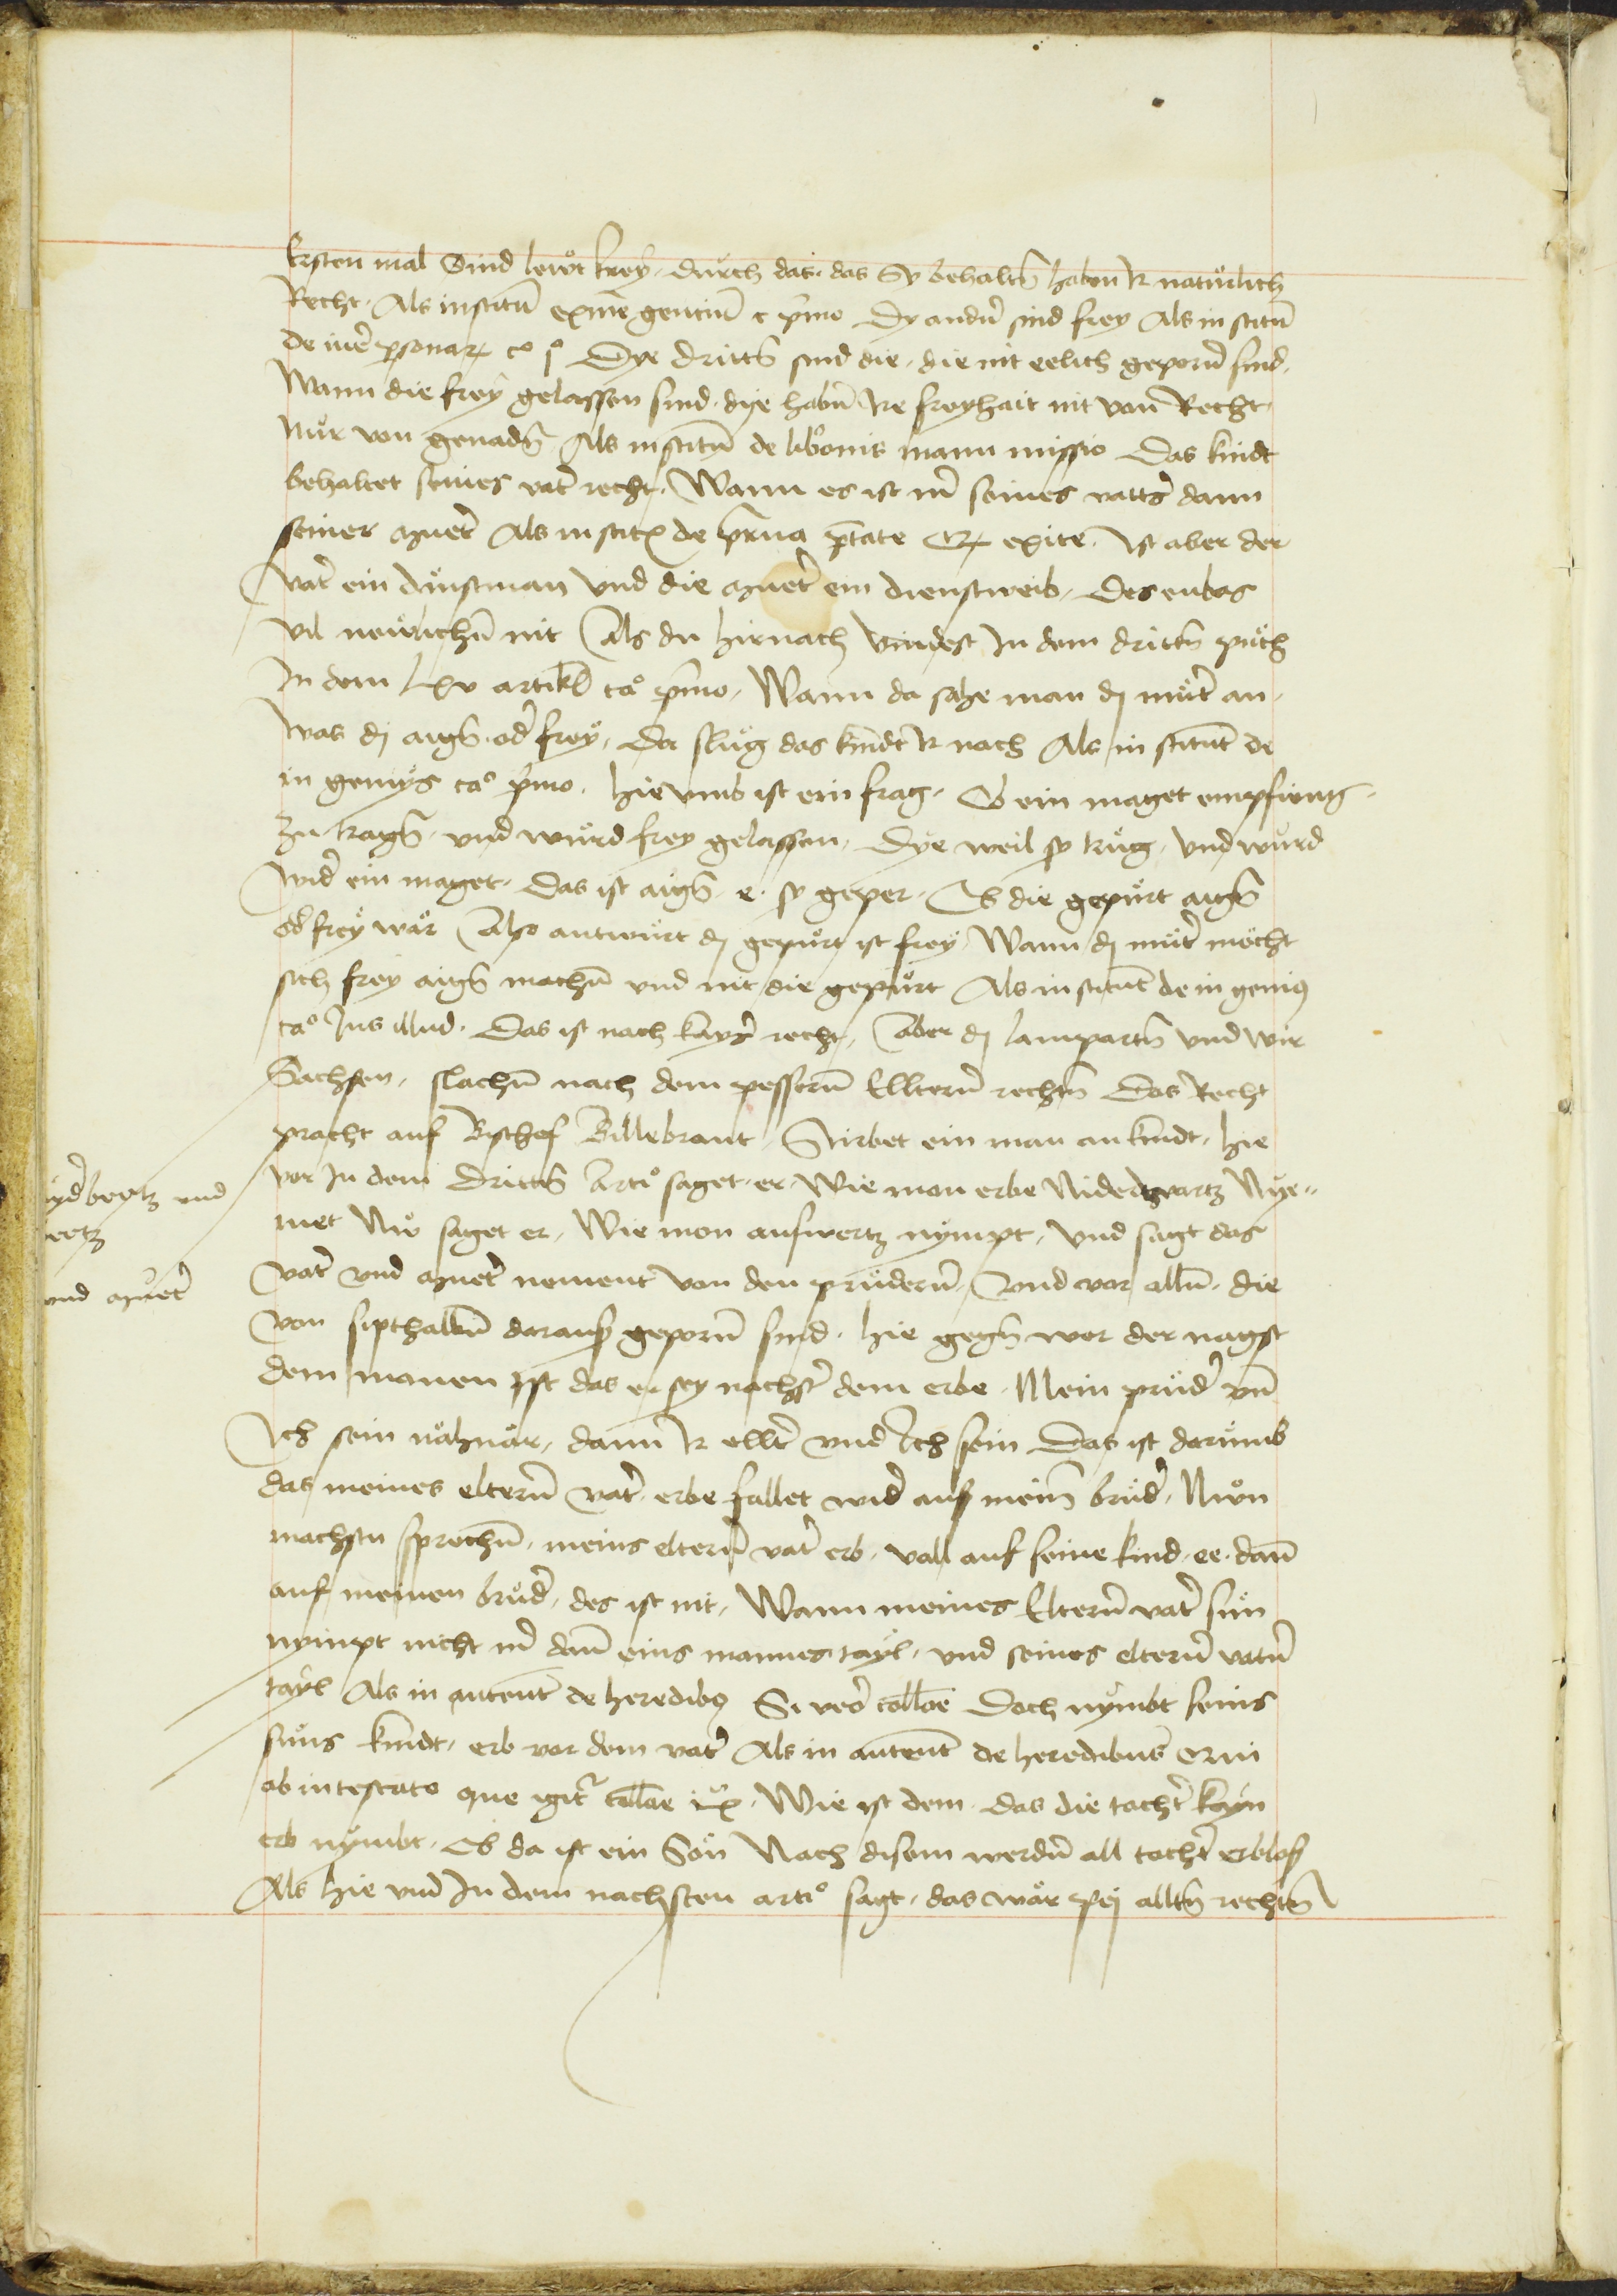 Ersten mal Sind lewt frey, durch das, das Sy behaltn̄ haben Ir naturlich
Recht. Als institū ex iure gentiū c p̄mo Dy andn̄ sind frey Als institū
de iure ꝑsonaꝝ c° j° Dye dritt̄n sind die, die nit eelich geporn̄ sind,
Wann die frey gelassen sind, dye habn̄ Ire freyhait nit von Recht,
Nur von genadn̄ Als institū de lib̄tinis manu missio Das kindt
behaltet seines vat̄ recht, Wann es ist m̄ seines vatt̄s dann
seiner muet̄ Als institꝭ de p̄ria p̄tate exite. Ist aber der
Vat̄ ein dinstman Vnd die muet̄ ein dienstweib, Des enbas
Vil newlichn̄ nit Als du hirnach Vindest In dem dritt̄n puch
In dem lxv artikl̄ ca° p̄mo, Wann da sahe man dj mut̄ an,
Was dj aign̄ od̄ frey, Da slug das kindt Ir nach Als in stitut̄ de
in genuys ca° p̄mo. hie vmb ist ein frag, Ob ein maget empfieng
Zu tragn̄, vnd wurd frey gelassen, Dye weil sy trug, Vnd wurd
Wid̄ ein maget, Das ist aign̄ e. sy geper, Ob die gepurt aign̄
od̄ frey war Also antwurt dj gepurt ist frey, Wann dj mut̄ mocht
sich frey aign̄ machn̄ vnd nit die gepurt Als in stitut̄ de in genuis
ca° Ius illud. Das ist nach kays̄ recht, Aber dj lampartn̄ vnd wir
Sachsen, slachn̄ nach dem pessern̄ Elltern̄ rechtn̄ Das Recht
pracht auf Bischof Billebrant, Stirbet ein man an kindt, hie
vor In dem Dritt̄n Arti° saget er, Wie man erbe Niderwartz Nye-
met Nu saget er, Wie man aufwertz nympt, Vnd sagt das
Vat̄ vnd muet̄ nement Von den prudern̄, Vnd vor alln̄, die
Von sipthalbn̄ darauß geporn̄ sind, hie gegn̄ wer der nagst
dem manen Ist das er sey nachst̄ dem erbe, Mein prud̄ vn̄
Ich sein nähnär, dann Ir ellt̄ vnd Ich sein Das ist darumb
das meines eltern̄ Vat̄ erbe fallet wid̄ auf mein̄ brud̄, Nwn
machstu sprechn̄, meins eltern̄ vat̄ erb, vall auf seine kind, ee, dan̄
auf meinen brud̄, des ist nit, Wann meines Eltern̄ vat̄ sun
nympt nicht m̄ dan̄ eins mannes tayl, vnd seines eltern̄ vatn̄
tayl Als in autent̄ de heredibꝯ Si vero colloe Doch nymbt seins
suns kindt, erb vor dem vat̄ Als in autent̄ de heredibus
ab intestato que igit̄ colloe ix, Wie ist dem, das die tocht̄ kayn
erb nymbt, Ob da ist ein Son Nach disem werdn̄ all tocht̄ erblos
Als hie vnd In dem nachsten arti° sagt, das wär pej alltn̄ rechtn̄
yd̄bertz vnd
ertz
vnd muet̄